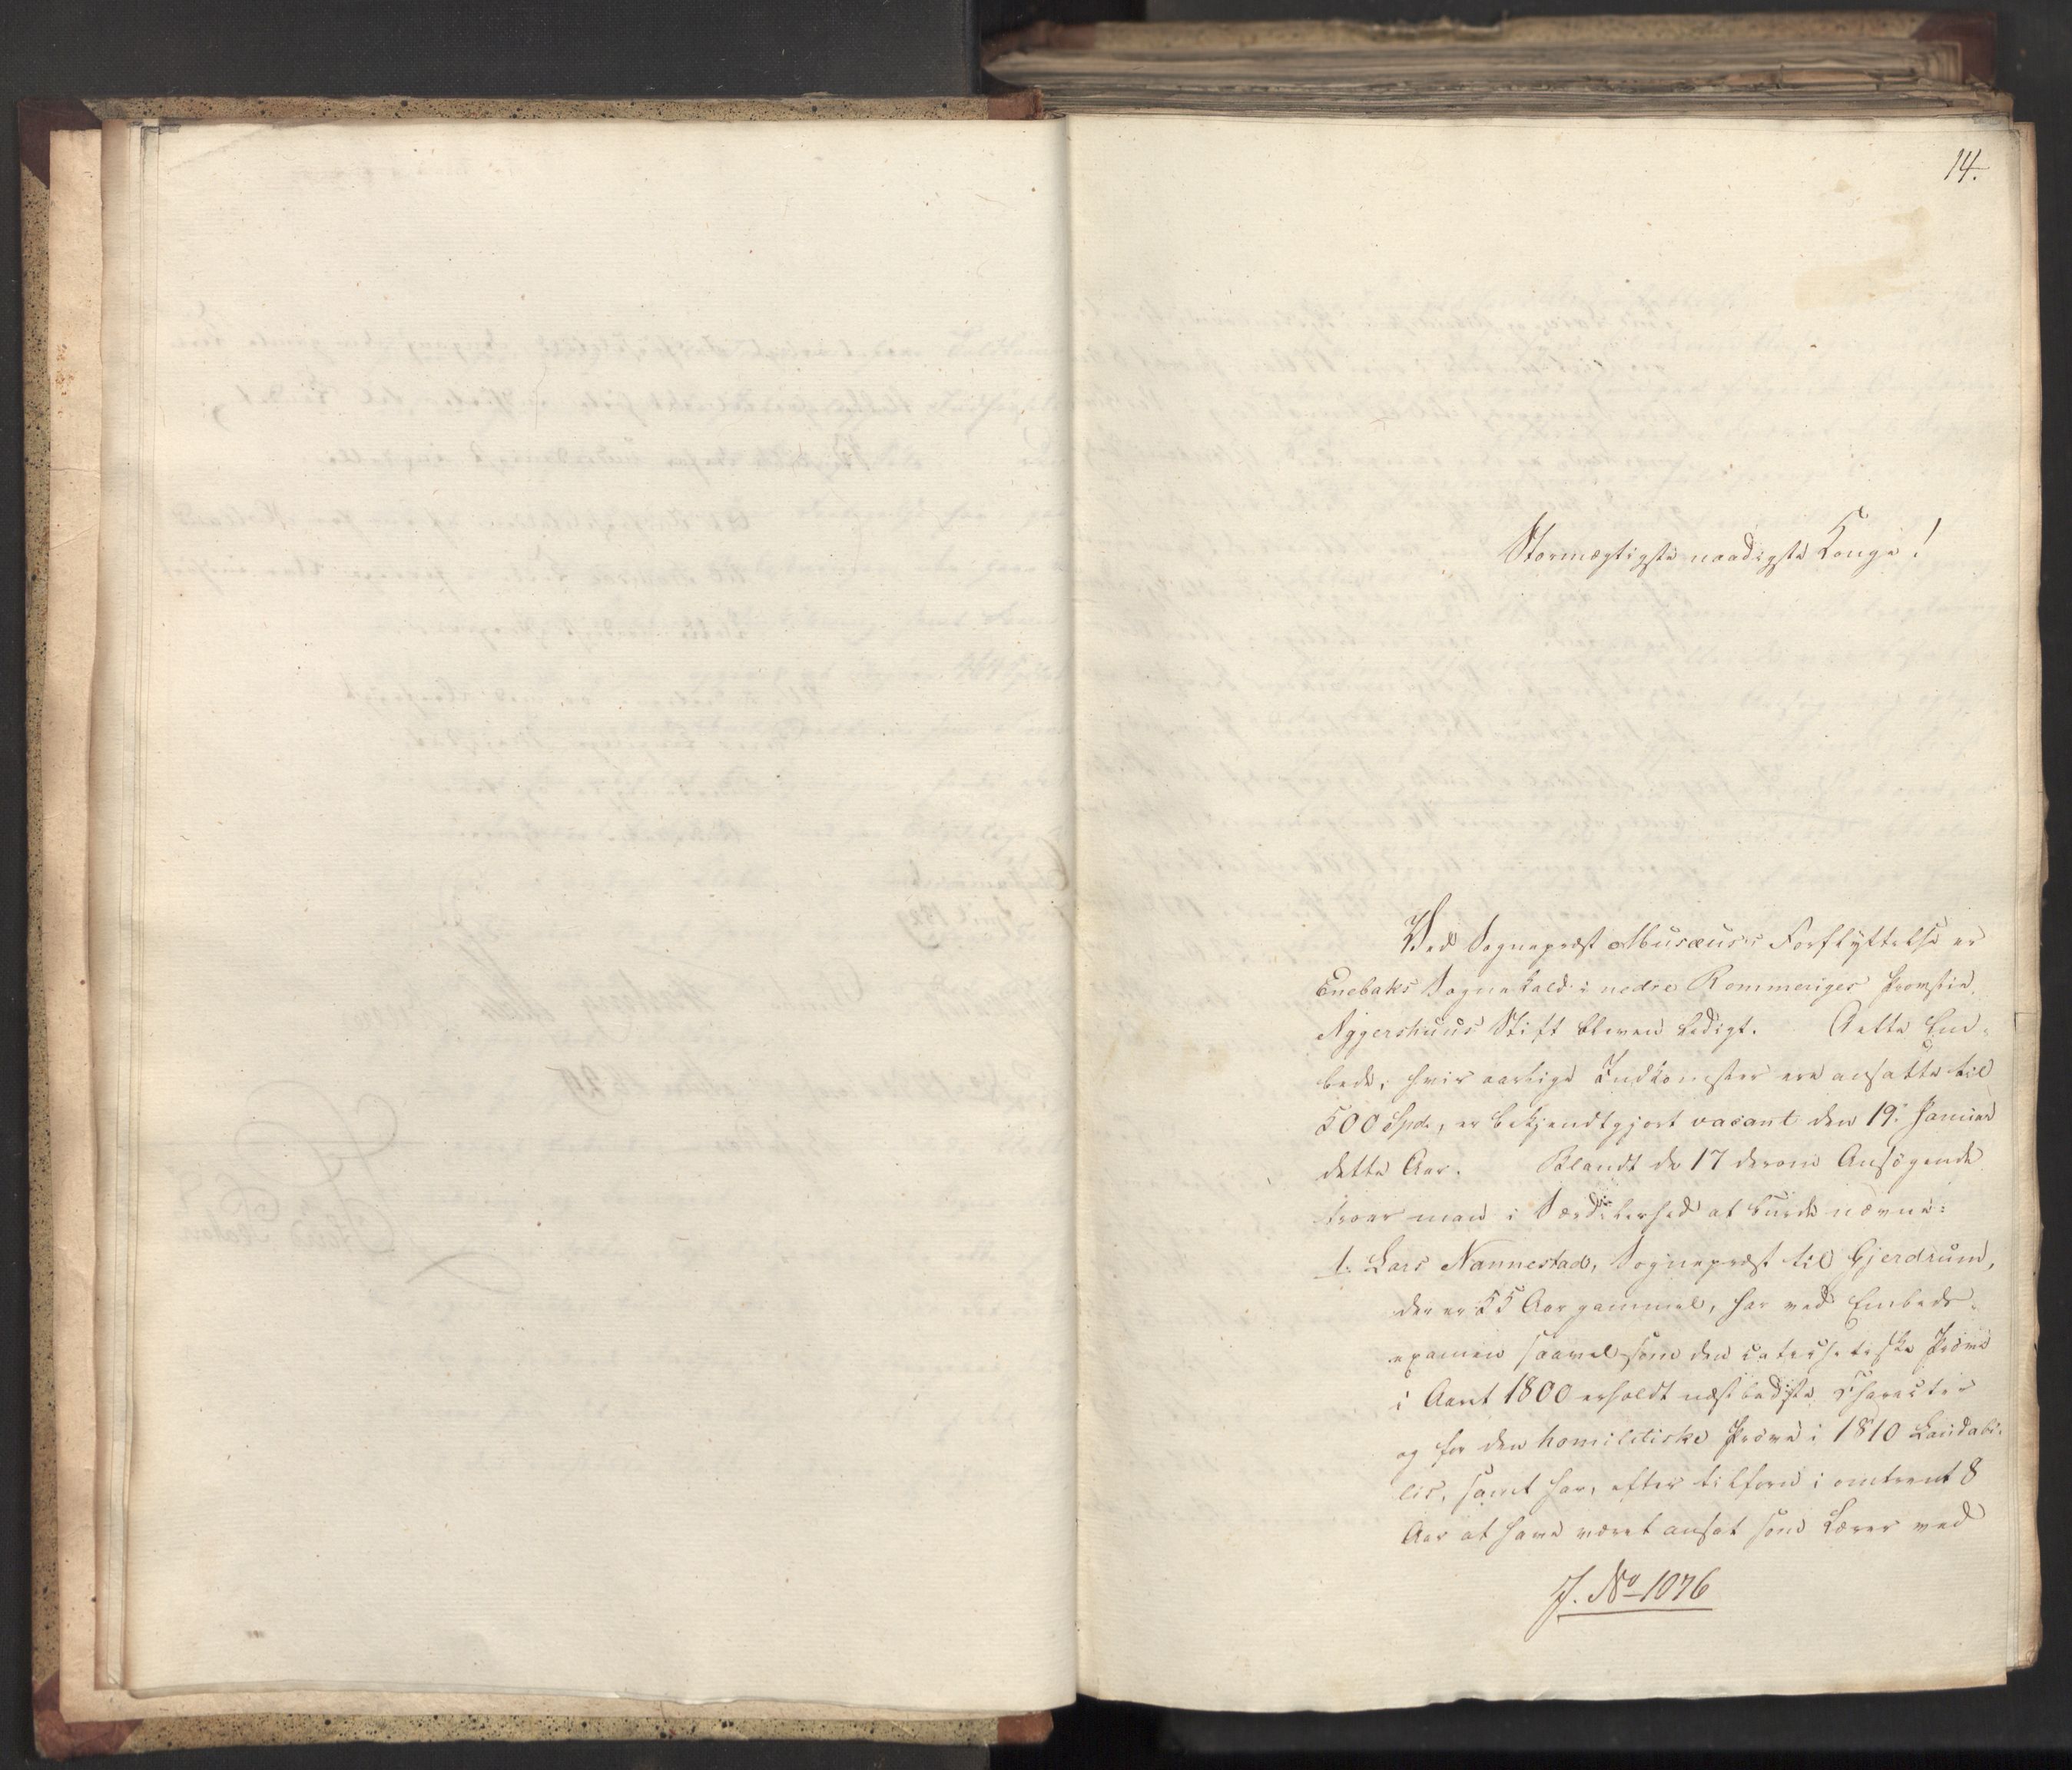 14.
Stormægtigste naadigste Konge!
Ved Sognepræst Musæus's Forflyttelse er
Enebaks Sognekald i nedre Rommeriges Provstie,
Aggershuus Stift bleven ledigt. Dette Em-
bede, hvis aarlige Indkomster ere ansatte til
500 Spd., er bekjendtgjort vacant den 19. Januar
dette Aar. Blandt de 17 derom Ansøgende
troer man i Særdeleshed at burde nævne:
1. Lars Nannestad, Sognepræst til Gjerdrum,
der er 55 Aar gammel, har ved Embeds-
examen saavelsom den catechetiske Prøve
i Aaret 1800 erholdt næstbedste Charecter
og for den homiletiske Prøve i 1810 Laudabi-
lis, samt har, efter tilforn i omtrent 8
Aar at have været ansat som Lærer ved
J. No 1076